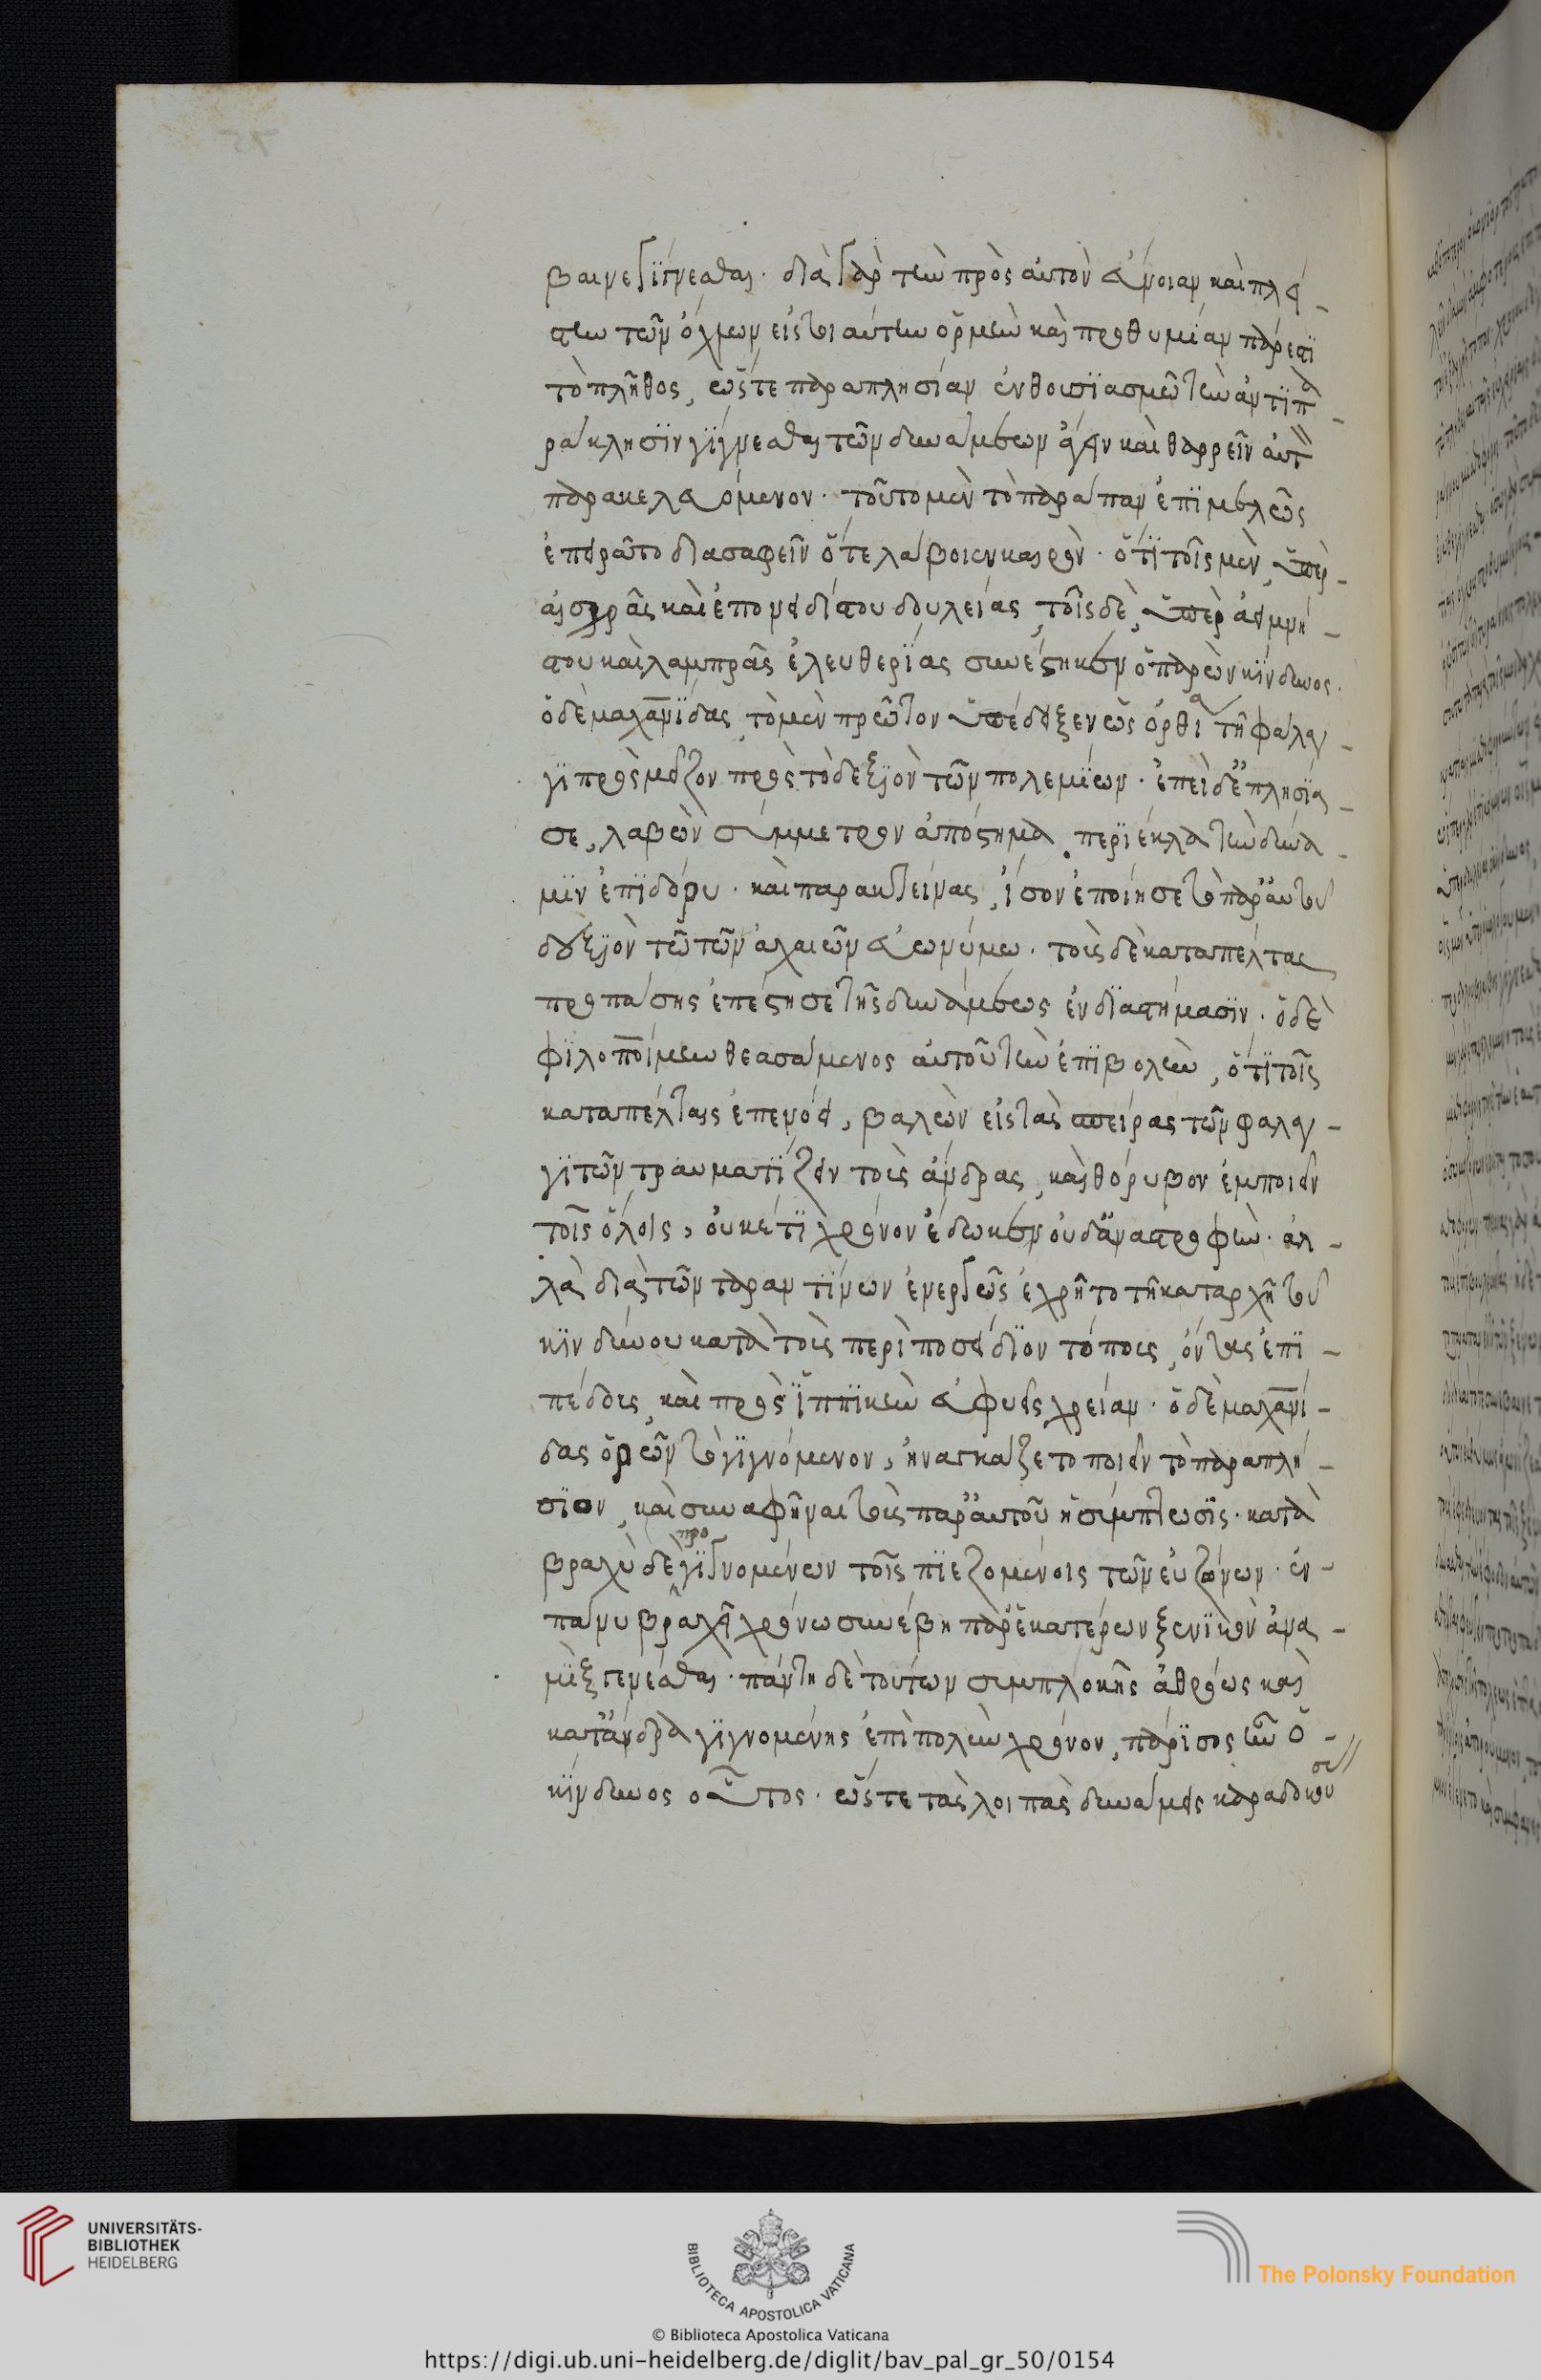 βαινε γίγνεσθαι. διὰ γὰρ τὴν πρὸς αὐτὸν εὔνοιαν καὶ πί-
στιν τῶν ὄχλων εἰς τοιαύτην ὁρμὴν καὶ προθυμίαν παρέστη
τὸ πλῆθος, ὥστε παραπλησίαν ἐνθουσιασμῷ τὴν ἀντιπα
ράκλησιν γίγνεσθαι τῶν δυνάμεων ἄγειν καὶ θαρρεῖν αὐτ
παρακελευόμενον. τοῦτο μὲν τὸ παράπαν ἐπιμελῶς
ἐπειρᾶτο διασαφεῖν ὅτε λάβοιεν καιρὸν. ὅτι τοῖς μὲν, ὑπὲρ
αἰσχρᾶς καὶ ἐπονειδίστου δουλείας, τοῖς δὲ, ὑπὲρ ἀειμνή-
στου καὶ λαμπρᾶς ἐλευθερίας συνέστηκεν ὁ παρὼν κίνδυνος.
ὁ δὲ μαχανίδας, τὸ μὲν πρῶτον ὑπέδειξεν ὡς ὀρθίᾳ τῇ φάλαγ-
γι προσμίξων πρὸς τὸ δεξιὸν τῶν πολεμίων. ἐπεὶ δ' ἐπλησία-
σε, λαβὼν σύμμετρον ἀπόστημα, περιέκλα τὴν δύνα-
μιν ἐπὶ δόρυ. καὶ παρακτείνας, ἴσον ἐποίησε τὸ παρ' αὐτοῦ
δεξιὸν τῷ τῶν ἀχαιῶν εὐωνύμῳ. τοὺς δὲ καταπέλτας
πρὸ πάσης ἐπέστησε τῆς δυνάμεως ἐν διαστήμασιν. ὁ δὲ
φιλοποίμην θεασάμενος αὐτοῦ τὴν ἐπιβολὴν, ὅτι τοῖς
καταπέλταις ἐπενόει, βαλὼν εἰς τὰς σπείρας τῶν φαλαγ-
γιτῶν τραυματίζειν τοὺς ἄνδρας, καὶ θόρυβον ἐμποιεῖν
τοῖς ὅλοις, οὐκέτι χρόνον ἔδωκεν οὐδ' ἀναστροφὴν. ἀλ-
λὰ διὰ τῶν ταραντίνων ἐνεργῶς ἐχρῆτο τῇ καταρχῇ τοῦ
κινδύνου κατὰ τοὺς περὶ ποσείδιον τόπους, ὄντας ἐπι-
πέδους, καὶ πρὸς ἱππικὴν εὐφυεῖς χρείαν. ὁ δὲ μαχανί-
δας ὁρῶν τὸ γιγνόμενον, ἠναγκάζετο ποιεῖν τὸ παραπλή-
σιον, καὶ συναφῆναι τοὺς παρ' αὐτοῦ ἡ σύμπτωσις. κατὰ
βραχὺ δὲ προσγιγνομένων τοῖς πιεζομένοις τῶν εὐζώνων. ἐν
πάνυ βραχεῖ χρόνῳ συνέβη παρ' ἑκατέρων ξενικὸν ἀνα-
μὶξ γενέσθαι. πάντῃ δὲ τούτων συμπλοκῆς ἀθρόως καὶ
κατ' ἄνδρα γιγνομένης ἐπὶ πολὺν χρόνον, πάρισος ἦν ὁ
κίνδυνος οὗτος. ὥστε τὰς λοιπὰς δυνάμεις καραδοκούσ
UNIVERSITÄTS-
BIBLIOTHEK
HEIDELBERG
BIBLIOTECA APOSTOLICA VATICANA
The Polonsky Foundation
© Biblioteca Apostolica Vaticana
https://digi.ub.uni-heidelberg.de/diglit/bav_pal_gr_50/0154